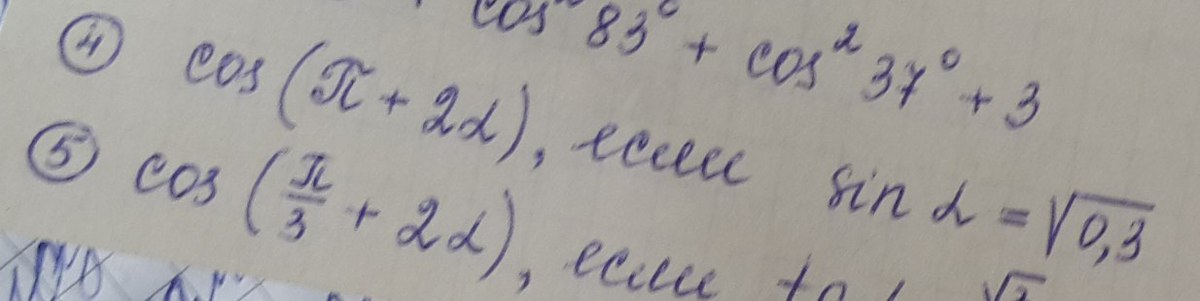 cos² 83° + cos² 37° + 3
④ cos(π + 2α), если sin α = √0,3
⑤ cos(π/3 + 2α), если